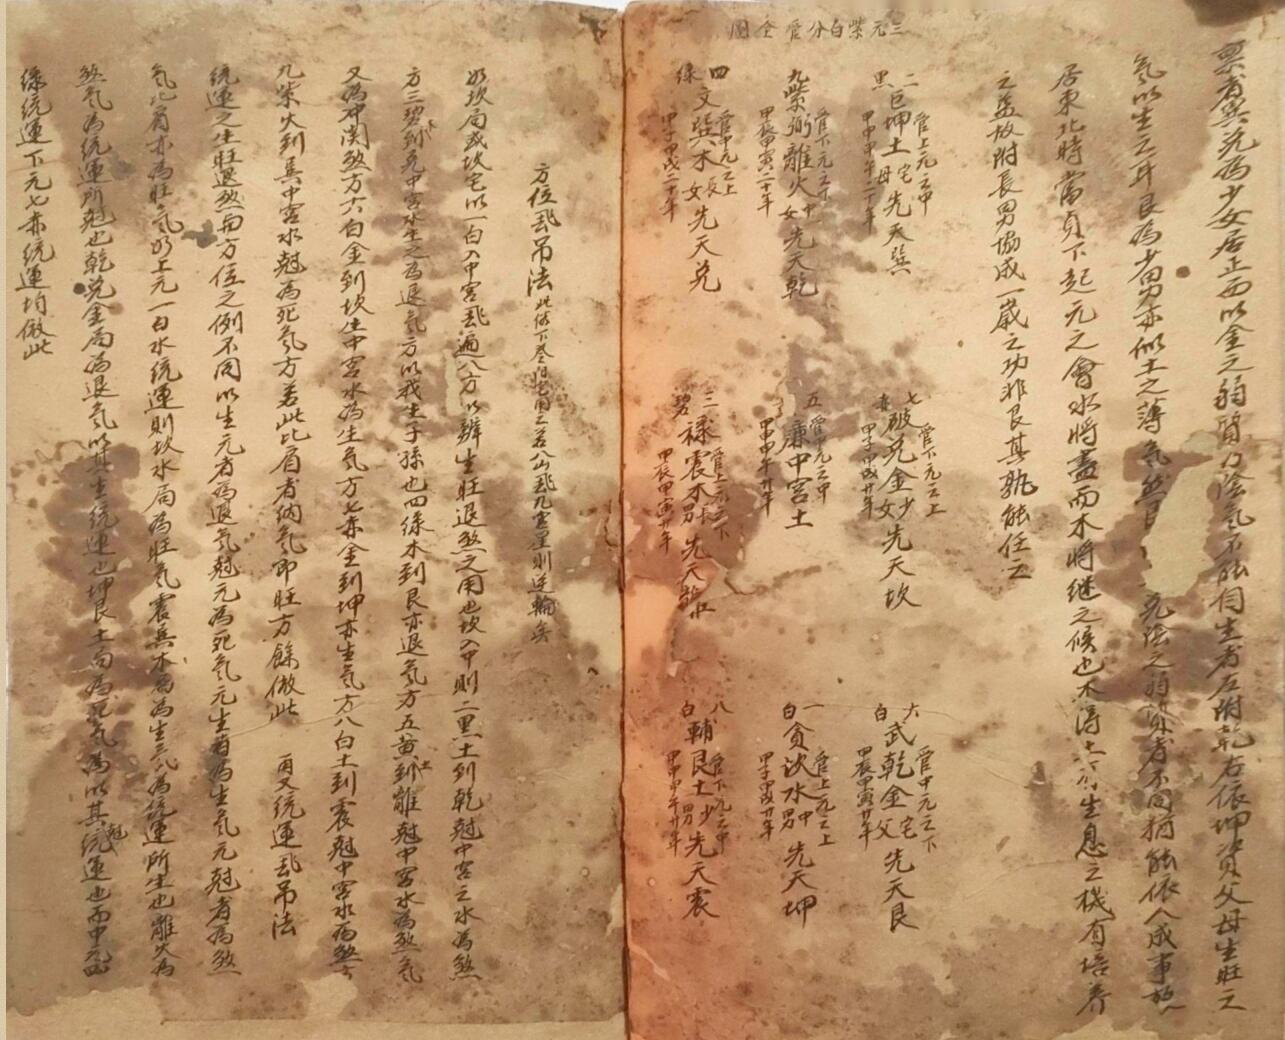 票者與兌為少女居正西以金之弱質力陰氣不能自生者左附乾右依坤資父母生旺之
氣以生之耳艮為少男亦似土之薄氣然艮 兌強之弱資者不同猶能依人成事於
居東北時當貞下起元之會水將盡而木將繼之候也木得土 生息之機有培养
之益故附長男協成一歲之功非艮其孰能任之
三元紫白分管全圖
二黑巨坤土宅母先天巽 管上元之中 甲申甲午二十年
七赤破兌金少女先天坎 管下元之上 甲子甲戌廿年
六白武乾金宅父先天艮 管中元之下 甲辰甲寅廿年
九紫弼離火中女先天乾 管下元之下 甲辰甲寅二十年
五 廉中宮土 管中元之中 甲申甲午廿年
一白貪坎水中男先天坤 管上元之上 甲子甲戌廿年
四綠文巽木長女先天兌 管中元之上 甲子甲戌二十年
三碧祿震木長男先天離 管上元之下 甲辰甲寅廿年
八白輔艮土少男先天震 管下元之中 甲申甲午廿年
方位飛吊法 此依下叁 宅用之若八山飛九宮星則逆輪矣
如坎局或坎宅以一白入中宮飛遍八方以辨生旺退煞之用也坎入中則二黑土到乾尅中宮之水為煞
方三碧木到兌中宮水生之為退氣方以我生子孫也四綠木到艮亦退氣方五黃土到離尅中宮水為煞氣
又為冲関煞方六白金到坎生中宮水為生氣方七赤金到坤亦生氣方八白土到震尅中宮水為煞方
九紫火到巽中宮水尅為死氣方若此比肩者納氣即旺方餘倣此 再又統運飛吊法
統運之生旺退煞與方位之例不同以生元者為退氣尅元為死氣元生者為生氣元尅者為煞
氣比肩亦為旺氣如上元一白水統運則坎水局為旺氣震巽木局為生氣為統運所生也離火為
煞氣為統運所尅也乾兌金局為退氣以其生統運也坤艮土局為死氣為以其尅統運也而中元四
綠統運下元七赤統運均倣此